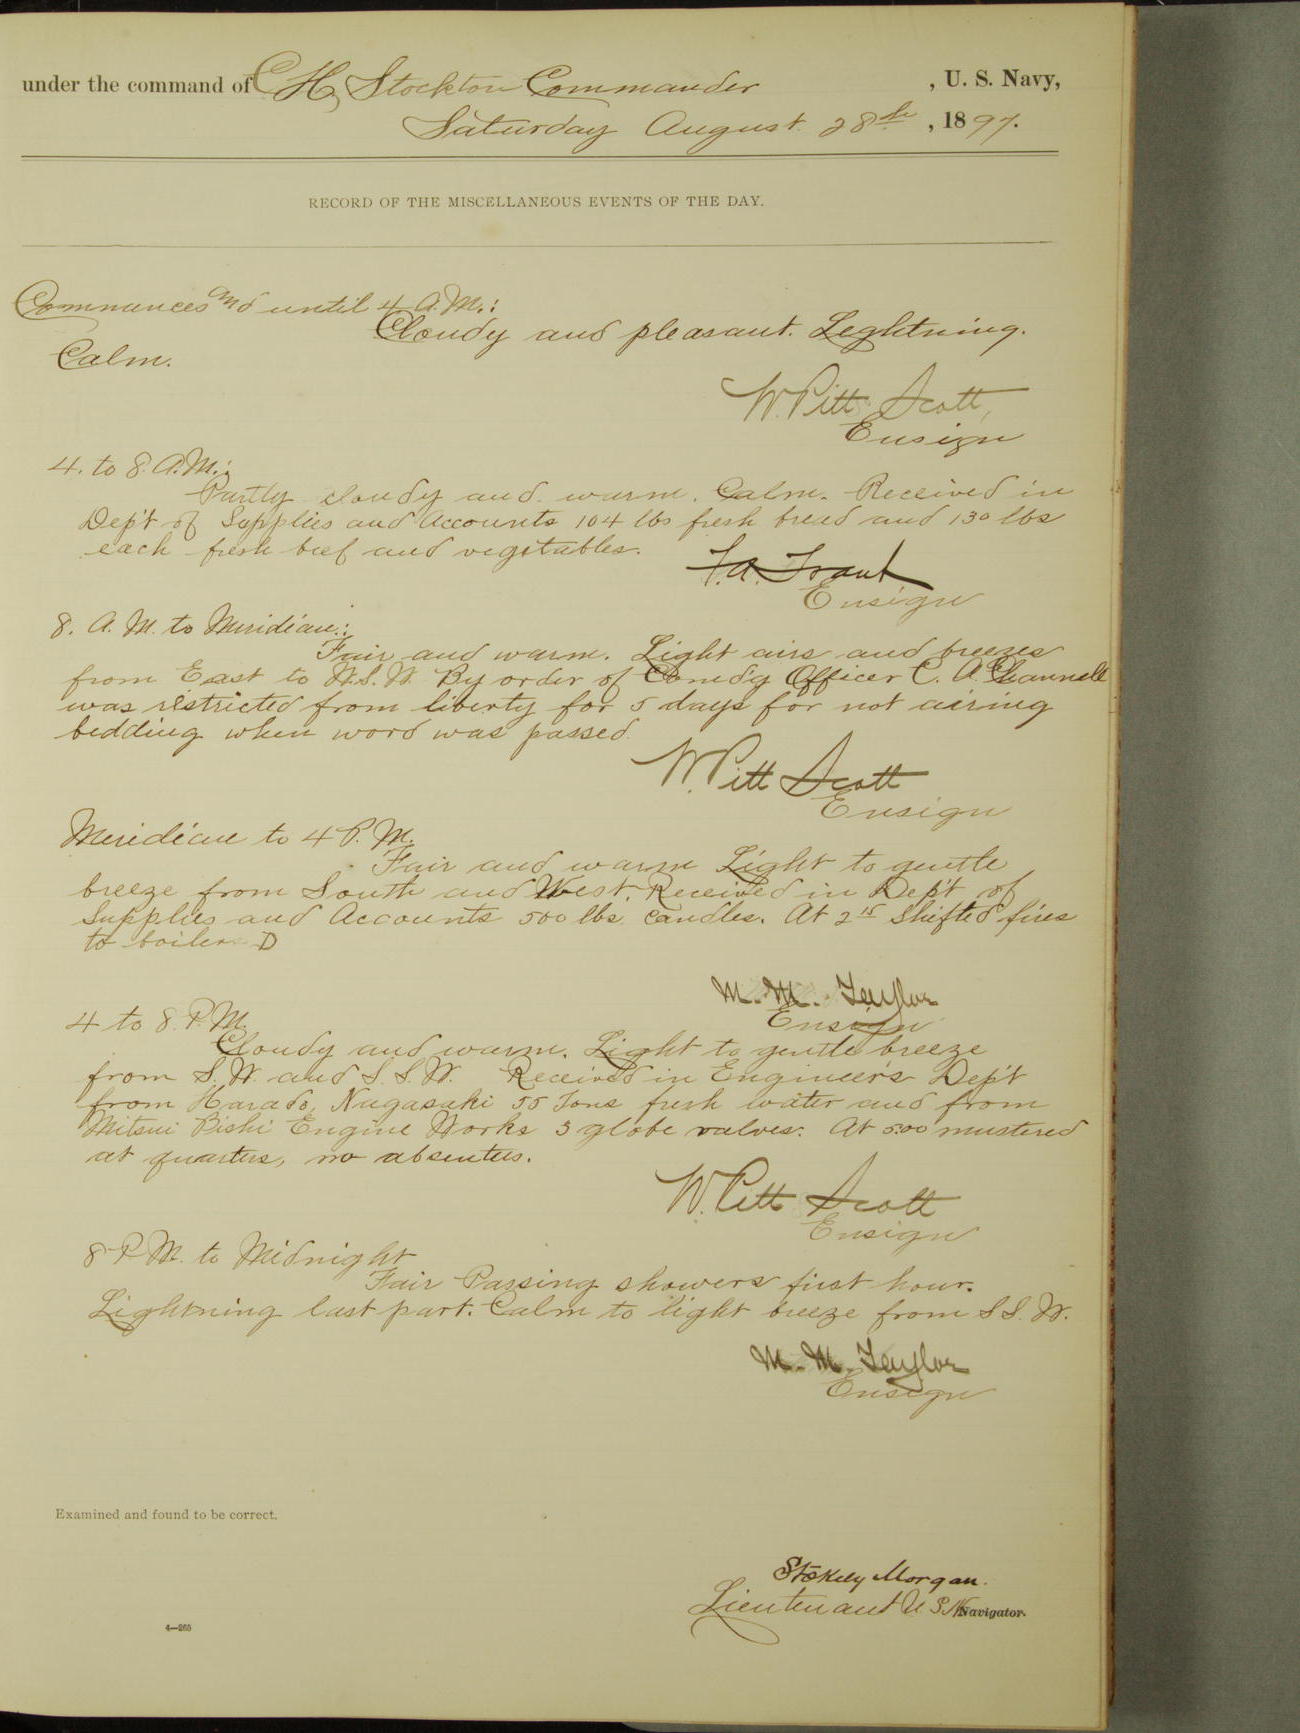 under the command of C H Stockton Commander , U. S. Navy,
Saturday August 28th , 1897.
RECORD OF THE MISCELLANEOUS EVENTS OF THE DAY.
Commences and until 4 A.M.:
Cloudy and pleasant. Lightning.
Calm.
W. Pitt Scott,
Ensign
4. to 8. A.M.:
Partly cloudy and warm. Calm. Received in
Dep't of Supplies and Accounts 104 lbs fresh bread and 130 lbs
each fresh beef and vegetables.
F. A. Traut
Ensign
8. A. M. to Meridian:
Fair and warm. Light airs and breezes
from East to W.S.W. By order of Comd'g Officer C. A. Channell
was restricted from liberty for 5 days for not airing
bedding when word was passed.
W. Pitt Scott
Ensign
Meridian to 4 P. M.
Fair and warm Light to gentle
breeze from South and West. Received in Dep't of
Supplies and Accounts 500 lbs. candles. At 2 15 Shifted fires
to boiler D
M. M. Taylor
Ensign
4 to 8. P.M.
Cloudy and warm. Light to gentle breeze
from S.W. and S.S.W. Received in Engineer's Dep't
from Harada, Nagasaki 55 Tons fresh water and from
Mitsui Bishi Engine Works 3 globe valves. At 5.00 mustered
at quarters, no absentees.
W. Pitt Scott
Ensign
8 P.M. to Midnight
Fair Passing showers first hour.
Lightning last part. Calm to light breeze from S S. W.
M. M. Taylor
Ensign
Examined and found to be correct.
Stokely Morgan.
Lieutenant U S N Navigator.
4—265